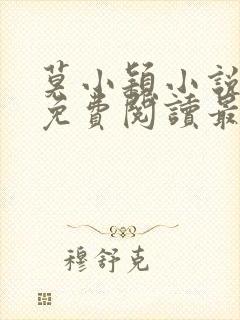 莫小穎小說
免費閱讀最
穆舒克